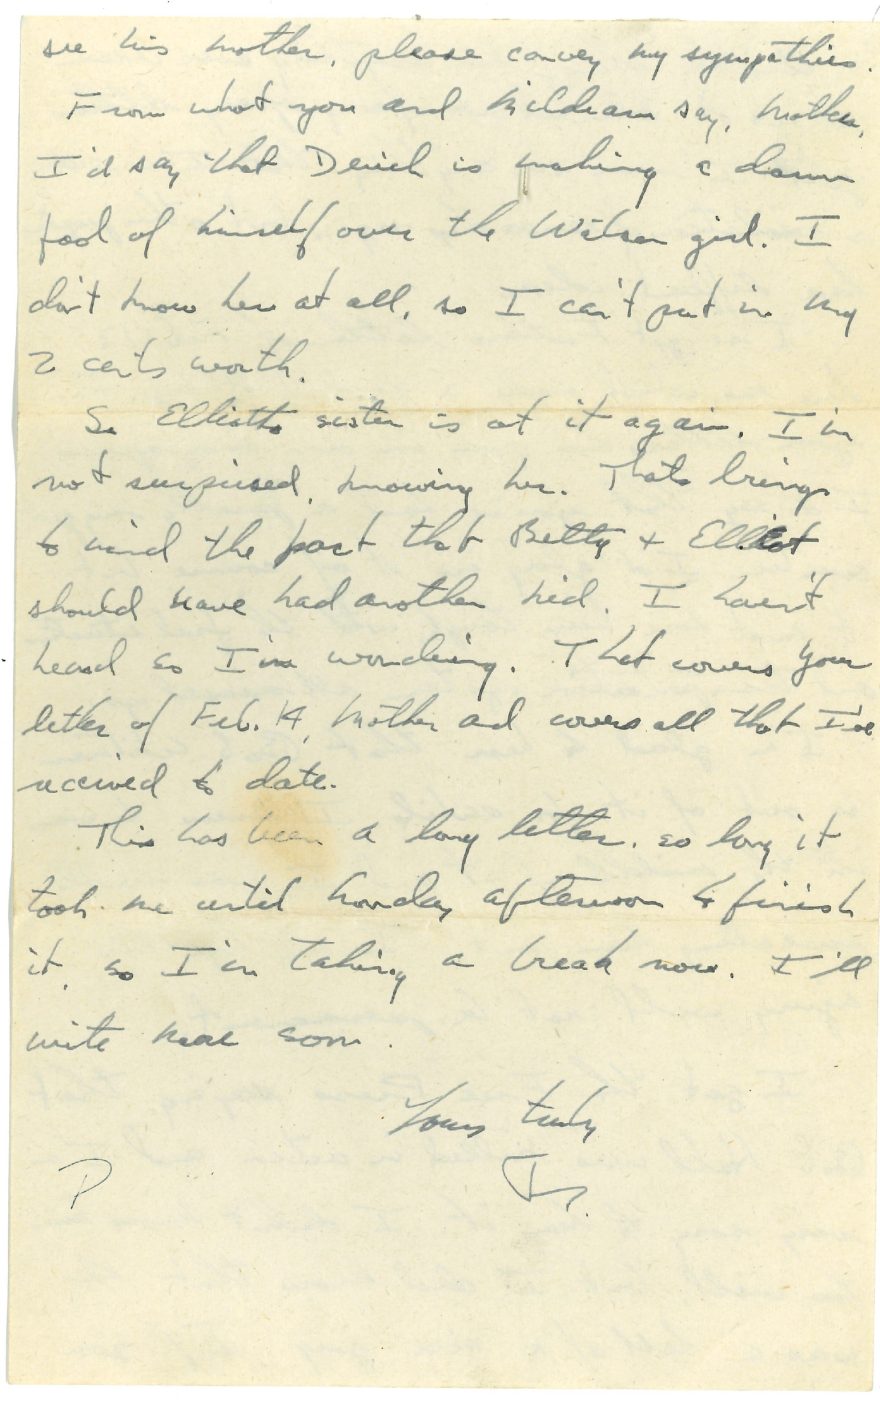 see his mother, please convey my sympathies.
From what you and Mildram say, Mother,
I'd say that Derick is making a damn
fool of himself over the Watson girl. I
don't know her at all, so I can't put in my
2 cents worth.
So Elliotts sister is at it again. I'm
not surprised, knowing her. Thats brings
to mind the fact that Betty + Elliot
should have had another kid. I haven't
heard so I'm wondering. That covers your
letter of Feb. 14, Mother and covers all that I've
received to date.
This has been a long letter. so long it
took me until Monday afternoon to finish
it, so I'm taking a break now. I'll
write more soon.
Yours truly
P